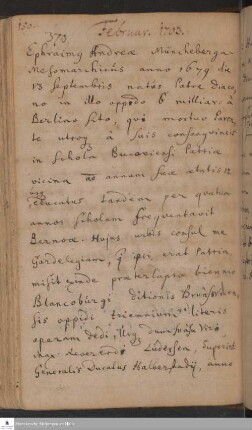 Februar. 1703.
373
Ephraimg Andreæ Müncheberga-
Mesomarchicus anno 1679 die
13 Septembris natus Patre Diaco-
no in illo oppido 6 milliari à
Berlino sito, quò mortuo Paren-
te utroq à suis consangvineis
in Schola Bucovicensi Patria
vicina ad annum suæ ætatis 12
educatus tandem per qvatuor
annos Scholam freqventavit
Bernoæ. Hujus urbis consul me
Gardelegiam, q ipsi erat Patria,
misit, exinde præterlapso biennio
Blancoburgi ditionis Brunsvicen-
sis oppidi triennium literis
operam dedi,
max. reverendo Ludersen, Superint.
Generalis Ducatus Halberstadij, anno